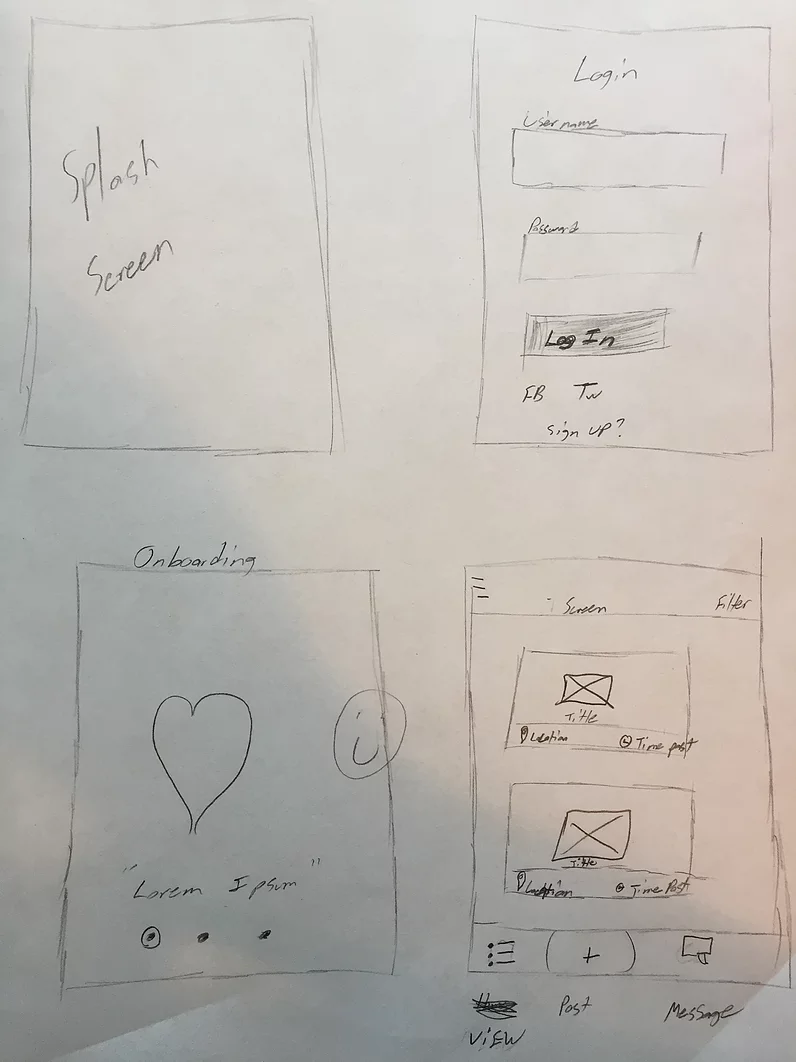 Splash
Screen
Login
Username
Password
Log In
FB Tw
Sign UP?
Onboarding
"Lorem Ipsum"
Screen Filter
Title
Location Time post
Title
Location Time Post
+
Post Message
VIEW